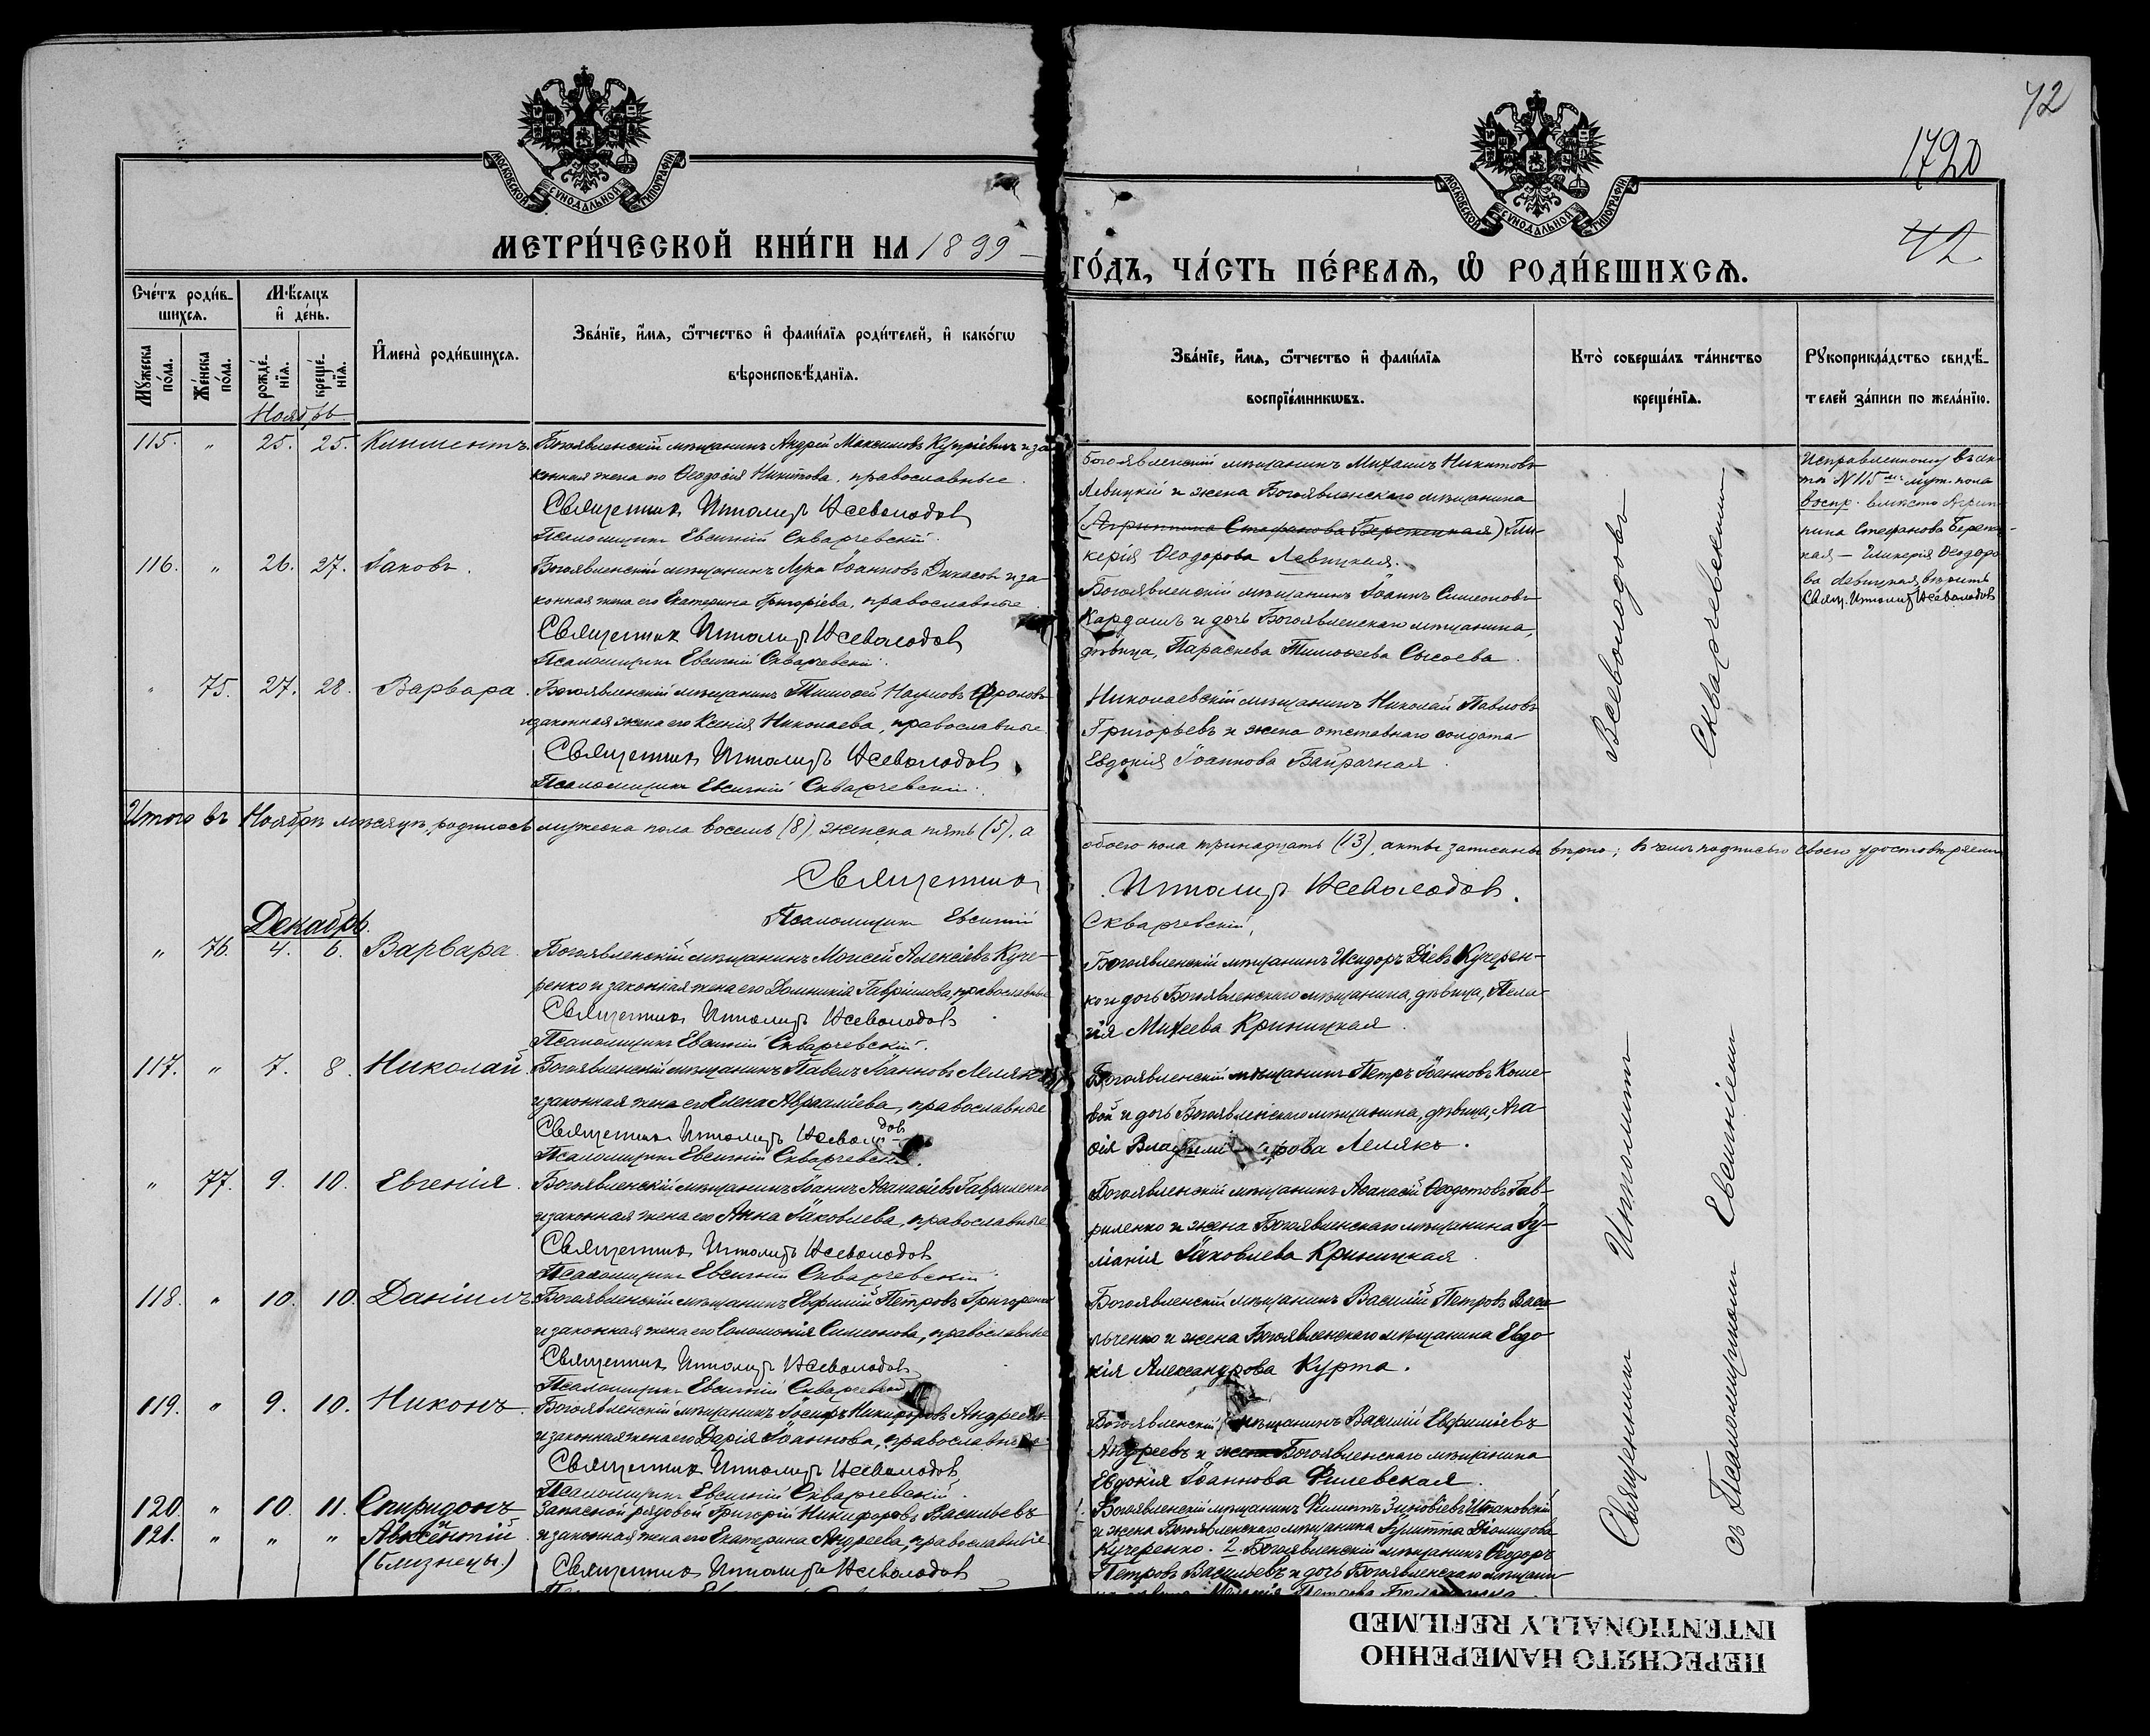 42
1720
42
МОСКОВСКОЙ СѴНОДАЛЬНОЙ ТИПОГРАФІИ
МОСКОВСКОЙ СѴНОДАЛЬНОЙ ТИПОГРАФІИ
МЕТРИ́ЧЕСКОЙ КНИ́ГИ НА 1899
ГО́ДЪ, ЧА́СТЬ ПЕ́РВАѦ, Ѽ РОДИ́ВШИХСѦ.
Сче́тъ роди́в-
шихсѧ.
Мѣ́сѧцъ
и҆ де́нь.
Мꙋ́жеска
по́ла.
Же́нска
по́ла.
рожде́-
нїѧ.
креще́-
нїѧ.
И҆мена̀ роди́вшихсѧ.
Зва́нїе, и҆́мѧ, ѻ҆́тчество и҆ фами́лїѧ роди́телей, и҆ како́гѡ
вѣроисповѣ́данїѧ.
Зва́нїе, и҆́мѧ, ѻ҆́тчество и҆ фами́лїѧ
воспрїе́мникѡвъ.
Кто̀ соверша́лъ та́инство
креще́нїѧ.
Рꙋкоприкла́дство свидѣ́-
телей за́писи по жела́нїю.
Ноябрь
115. " 25. 25. Климентъ. Богоявленскій мѣщанинъ Андрей Максимовъ Купріевичъ и за
конная жена его Ѳеодосія Никитова, православные.
Священникъ Ипполитъ Всеволодовъ
Псаломщикъ Евсигній Скварчевскій.
Богоявленскій мѣщанинъ Михаилъ Никитовъ
Левицкій и жена Богоявленскаго мѣщанина
(Агриппина Стефанова Бережецкая) Гли-
керія Ѳеодорова Левицкая.
Исправленному въ ак-
тѣ №115 муж. пола
воспр. вмѣсто Агрип-
пина Стефанова Береже-
цкая — Гликерія Ѳеодоро
ва Левицкая, вѣрить
Свящ. Ипполитъ Всеволодовъ
116. " 26. 27. Іаковъ. Богоявленскій мѣщанинъ Лука Іоанновъ Дикасовъ и за-
конная жена его Екатерина Григоріева, православные
Священникъ Ипполитъ Всеволодовъ
Псаломщикъ Евсигній Скварчевскій.
Богоявленскій мѣщанинъ Іоаннъ Симеоновъ
Кардашъ и дочь Богоявленскаго мѣщанина,
дѣвица, Параскева Тимоѳеева Сысоева.
" 75. 27. 28. Варвара. Богоявленскій мѣщанинъ Тимоѳей Наумовъ Фроловъ
и законная жена его Ксенія Николаева, православные
Священникъ Ипполитъ Всеволодовъ
Псаломщикъ Евсигній Скварчевскій.
Николаевскій мѣщанинъ Николай Павловъ
Григорьевъ и жена отставнаго солдата
Евдокія Іоаннова Байрачная.
Итого въ Ноябрѣ мѣсяцѣ родилось мужеска пола восемь (8), женска пять (5), а
обоего пола тринадцать (13), акты записаны вѣрно; въ чемъ подписью своею удостовѣряемъ
Священникъ Ипполитъ Всеволодовъ.
Псаломщикъ Евсигній Скварчевскій,
Декабрь.
" 76. 4. 6. Варвара. Богоявленскій мѣщанинъ Моисей Алексіевъ Куче-
ренко и законная жена его Домникія Гавріилова, православные
Священникъ Ипполитъ Всеволодовъ
Псаломщикъ Евсигній Скварчевскій.
Богоявленскій мѣщанинъ Исидоръ Діевъ Кучерен-
ко и дочь Богоявленскаго мѣщанина, дѣвица, Пела-
гія Михеева Криницкая.
117. " 7. 8. Николай. Богоявленскій мѣщанинъ Павелъ Іоанновъ Лелякъ
и законная жена его Елена Авраміева, православные
Священникъ Ипполитъ Всеволодовъ
Псаломщикъ Евсигній Скварчевскій.
Богоявленскій мѣщанинъ Петръ Іоанновъ Коше-
вой и дочь Богоявленскаго мѣщанина, дѣвица, Ага
ѳія Владимірова Лелякъ.
" 77. 9. 10. Евгенія. Богоявленскій мѣщанинъ Іоаннъ Аѳанасіевъ Гавриленко
и законная жена его Анна Іаковлева, православные
Священникъ Ипполитъ Всеволодовъ
Псаломщикъ Евсигній Скварчевскій.
Богоявленскій мѣщанинъ Аѳанасій Ѳеодотовъ Гав-
риленко и жена Богоявленскаго мѣщанина Іу-
ліанія Іаковлева Криницкая.
118. " 10. 10. Даніилъ. Богоявленскій мѣщанинъ Евфимій Петровъ Григоренко
и законная жена его Соломонія Симеонова, православные
Священникъ Ипполитъ Всеволодовъ
Псаломщикъ Евсигній Скварчевскій
Богоявленскій мѣщанинъ Василій Петровъ Васи
льченко и жена Богоявленскаго мѣщанина Евдо-
кія Александрова Курта.
119. " 9. 10. Никонъ. Богоявленскій мѣщанинъ Іосифъ Никифоровъ Андреевъ
и законная жена его Дарія Іоаннова, православные
Священникъ Ипполитъ Всеволодовъ
Псаломщикъ Евсигній Скварчевскій.
Богоявленскій мѣщанинъ Василій Евфиміевъ
Андреевъ и жена Богоявленскаго мѣщанина
Евдокія Іоаннова Филевская.
120. " 10. 11. Спиридонъ Запасной рядовой Григорій Никифоровъ Васильевъ
121. " " " Авксентій и законная жена его Екатерина Андреева, православные
(близнецы.) Священникъ Ипполитъ Всеволодовъ
1. Богоявленскій мѣщанинъ Филиппъ Зиновіевъ
и жена Богоявленскаго мѣщанина Діомидова
Кучеренко. 2. Богоявленскій мѣщанинъ Ѳеодоръ
Петровъ Васильевъ и дочь Богоявленскаго мѣщани-
Священникомъ Ипполитомъ Всеволодовымъ
съ Псаломщикомъ Евсигніемъ Скварчевскимъ
ПЕРЕСНЯТО НАМЕРЕННО
INTENTIONALLY REFILMED